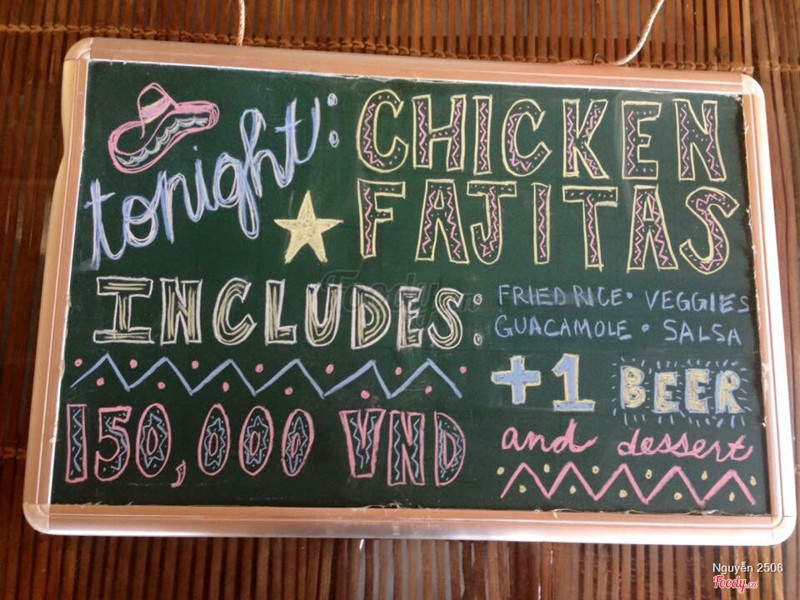 tonight: CHICKEN
FAJITAS
INCLUDES:
FRIED RICE • VEGGIES
GUACAMOLE • SALSA
+1 BEER
and dessert
150,000 VND
Foody.vn
Nguyễn 2506
Foody.vn